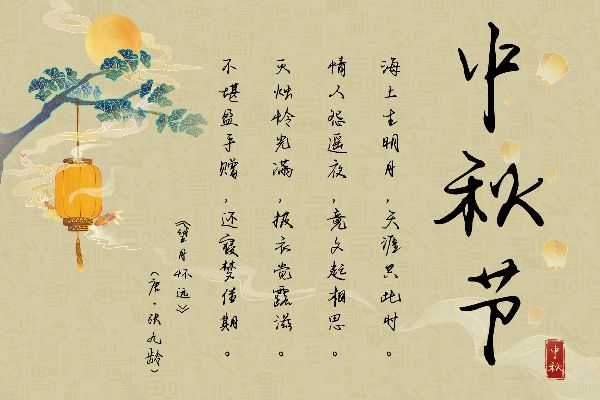 中秋节
海上生明月,天涯共此时。
情人怨遥夜,竟夕起相思。
灭烛怜光满,披衣觉露滋。
不堪盈手赠,还寝梦佳期。
《望月怀远》
(唐·张九龄)
中秋